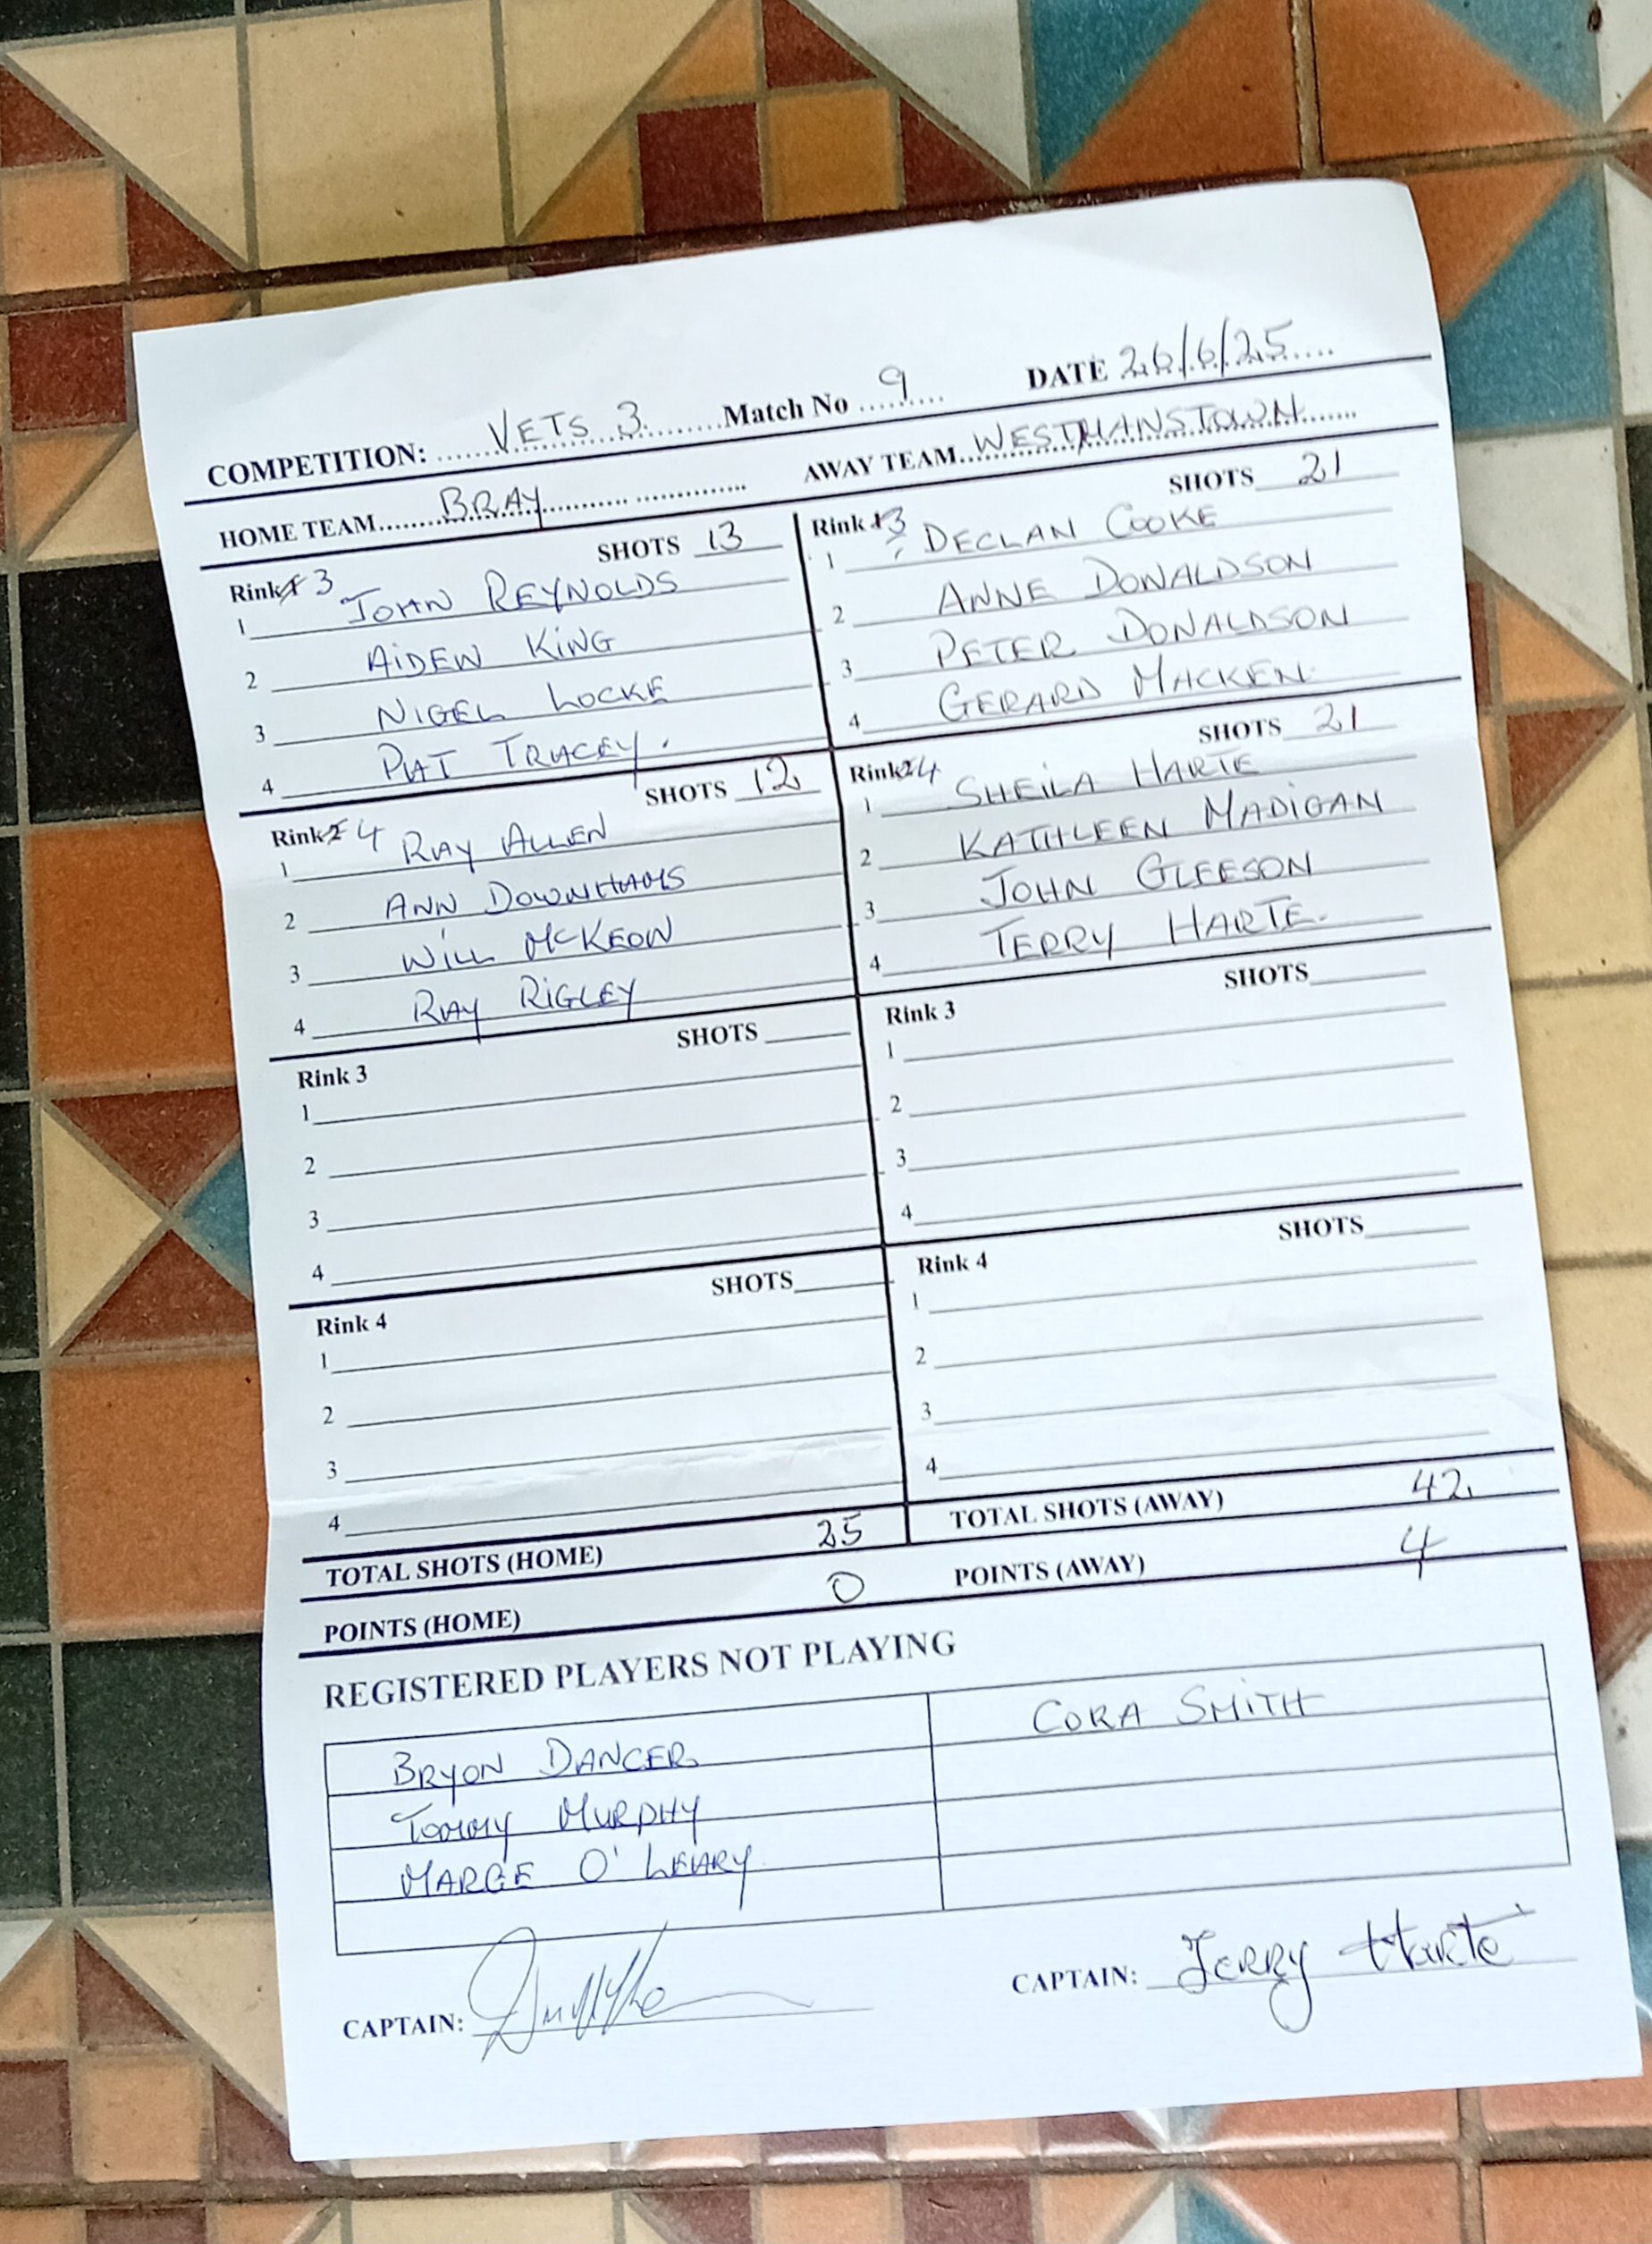 COMPETITION: VETS 3 Match No 9 DATE 26/6/25
HOME TEAM BRAY AWAY TEAM WESTMANSTOWN
Rink 3 SHOTS 13
1 JOHN REYNOLDS
2 AIDEN KING
3 NIGEL LOCKE
4 PAT TRACEY.
Rink 3 SHOTS 21
1 DECLAN COOKE
2 ANNE DONALDSON
3 PETER DONALDSON
4 GERARD MACKEN.
Rink 4 SHOTS 12
1 RAY ALLEN
2 ANN DOWNHAMS
3 WILL McKEOW
4 RAY RIGLEY
Rink 4 SHOTS 21
1 SHEILA HARTE
2 KATHLEEN MADIGAN
3 JOHN GLEESON
4 TERRY HARTE.
Rink 3 SHOTS
1
2
3
4
Rink 3 SHOTS
1
2
3
4
Rink 4 SHOTS
1
2
3
4
Rink 4 SHOTS
1
2
3
4
TOTAL SHOTS (HOME) 25 TOTAL SHOTS (AWAY) 42
POINTS (HOME) 0 POINTS (AWAY) 4
REGISTERED PLAYERS NOT PLAYING
BRYON DANCER CORA SMITH
TOMMY MURPHY
MARGE O'LEARY
CAPTAIN: CAPTAIN: Terry Harte